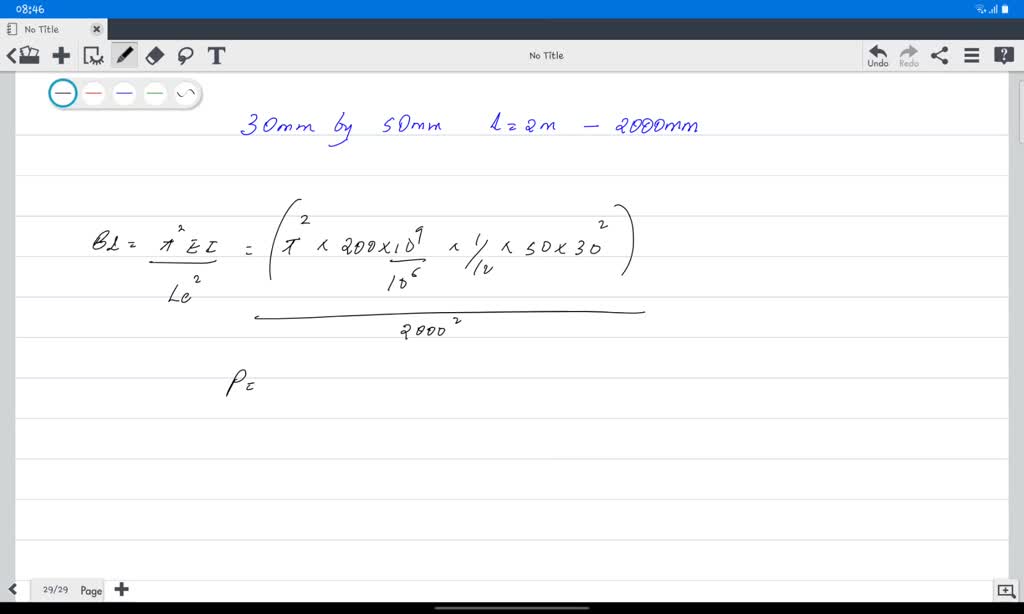 08:46
No Title
No Title
Undo
Redo
30mm by 50mm L=2m - 2000mm
BL = π² E I / Le² = (π² × 200×10⁹/10⁶ × 1/12 × 50 × 30²) / 2000²
P =
29/29 Page